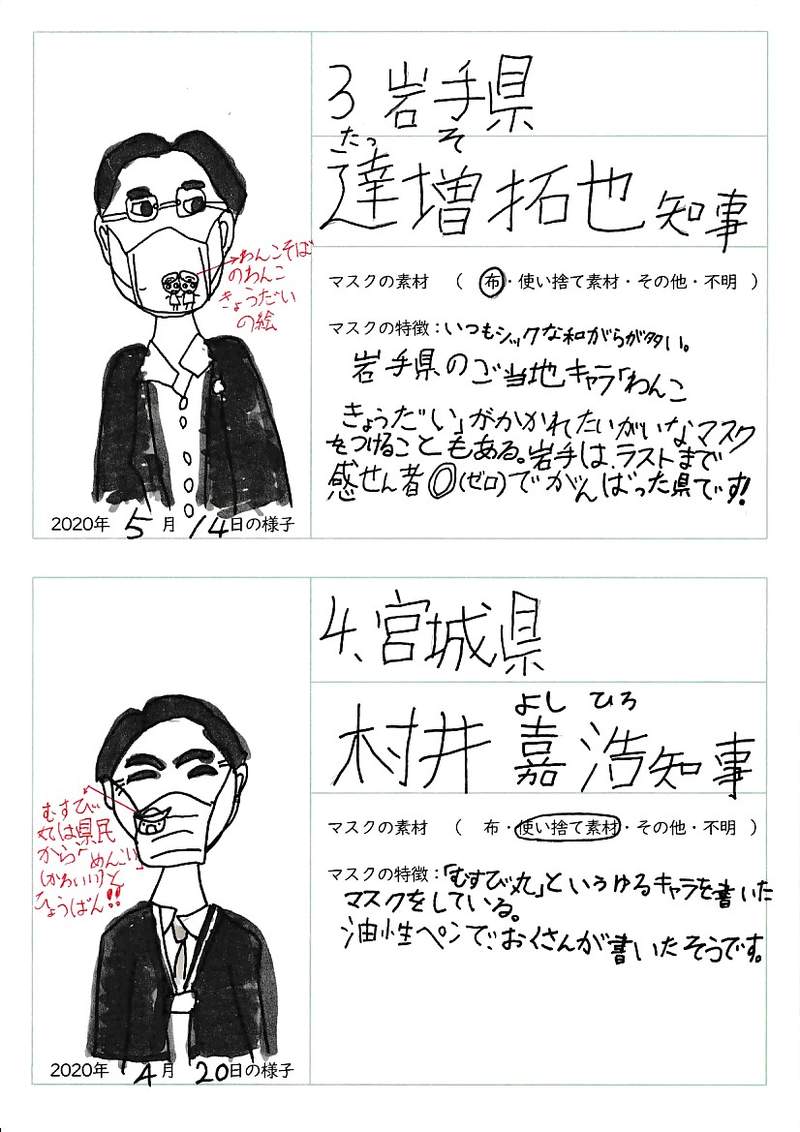 3 岩手県
たっ そ
達増拓也 知事
マスクの素材 （ 布・使い捨て素材・その他・不明 ）
マスクの特徴：いつもシックな和がらが多い。
岩手県のご当地キャラ「わんこ
きょうだい」がかかれたいがいなマスク
をつけることもある。岩手は、ラストまで
感せん者◎(ゼロ)でがんばった県です!
→わんこそば
のわんこ
きょうだい
の絵
2020年 5月 14日の様子
4、宮城県
よし ひろ
村井 嘉浩知事
マスクの素材 （ 布・使い捨て素材・その他・不明 ）
マスクの特徴：「むすび丸」というゆるキャラを書いた
マスクをしている。
油性ペンで、おくさんが書いたそうです。
むすび
丸は県民
から「めんこい」
(かわいい)と
ひょうばん!!
2020年 4月 20日の様子